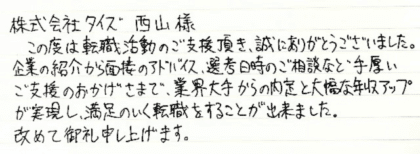 株式会社タイズ 西山様
この度は転職活動のご支援頂き、誠にありがとうございました。
企業の紹介から面接のアドバイス、選考日時のご相談など手厚い
ご支援のおかげさまで、業界大手からの内定と大幅な年収アップ
が実現し、満足のいく転職をすることが出来ました。
改めて御礼申し上げます。